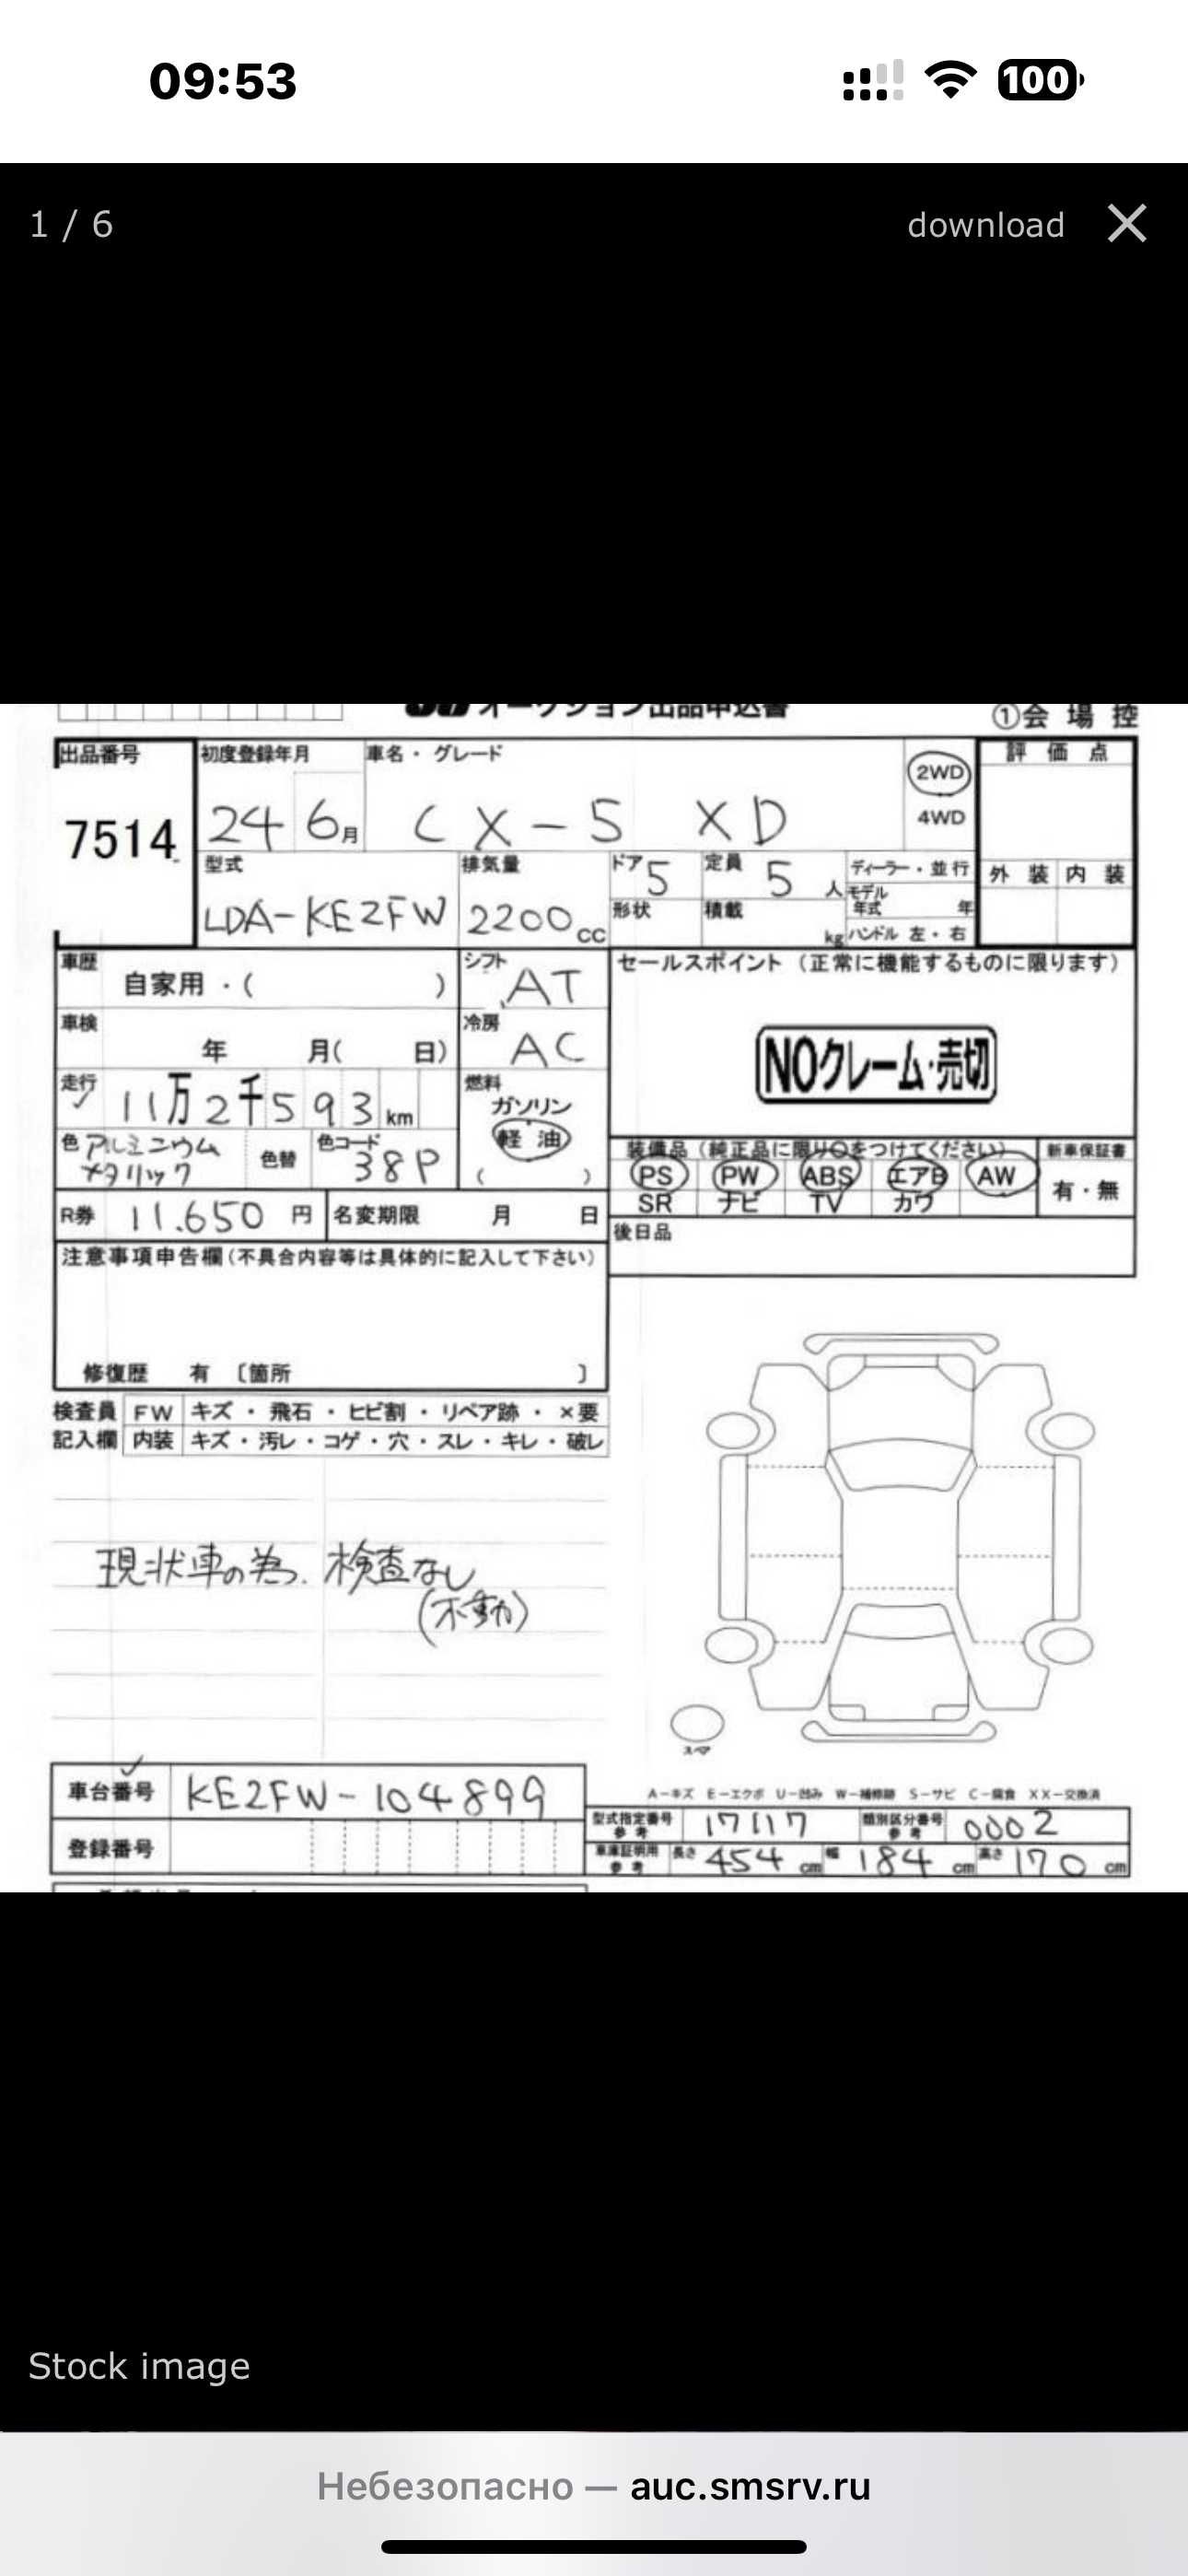 09:53
100
1 / 6
download
オークション出品申込書
①会 場 控
出品番号
7514
初度登録年月
24 6月
車名・グレード
CX-5 XD
2WD
4WD
評 価 点
外 装 内 装
型式
LDA-KE2FW
排気量
2200cc
ドア 5
定員 5人
ディーラー・並行
モデル年式 年
形状
積載 kg
ハンドル 左・右
車歴
自家用・( )
シフト
AT
セールスポイント（正常に機能するものに限ります）
NOクレーム・売切
車検
年 月( 日)
冷房
AC
走行
11万2千593km
燃料
ガソリン
軽油
( )
色 アルミニウム
メタリック
色替
色コード
38P
装備品（純正品に限り○をつけてください）
新車保証書
PS PW ABS エアB AW
有・無
SR ナビ TV カワ
R券 11.650 円
名変期限 月 日
後日品
注意事項申告欄（不具合内容等は具体的に記入して下さい）
修復歴 有 〔箇所 〕
検査員 FW キズ・飛石・ヒビ割・リペア跡・×要
記入欄 内装 キズ・汚レ・コゲ・穴・スレ・キレ・破レ
現状車の為、検査なし
(不動)
スペア
車台番号 KE2FW-104899
登録番号
A－キズ E－エクボ U－凹み W－補修跡 S－サビ C－腐食 XX－交換済
型式指定番号 参考 17117
類別区分番号 参考 0002
車庫証明用 参考 長さ 454 cm 幅 184 cm 高さ 170 cm
Stock image
Небезопасно — auc.smsrv.ru